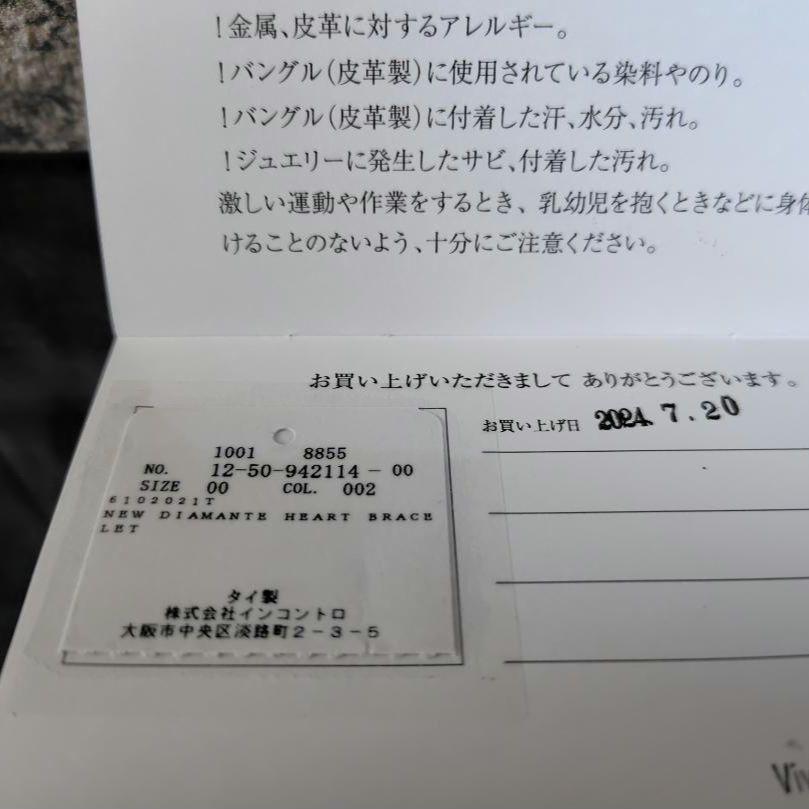 ！金属、皮革に対するアレルギー。
！バングル（皮革製）に使用されている染料やのり。
！バングル（皮革製）に付着した汗、水分、汚れ。
！ジュエリーに発生したサビ、付着した汚れ。
激しい運動や作業をするとき、乳幼児を抱くときなどに身体
けることのないよう、十分にご注意ください。
お買い上げいただきまして ありがとうございます。
お買い上げ日 2024. 7. 20
1001 8855
NO. 12-50-942114-00
SIZE 00 COL. 002
6102021T
NEW DIAMANTE HEART BRACE
LET
タイ製
株式会社インコントロ
大阪市中央区淡路町2-3-5
Viv